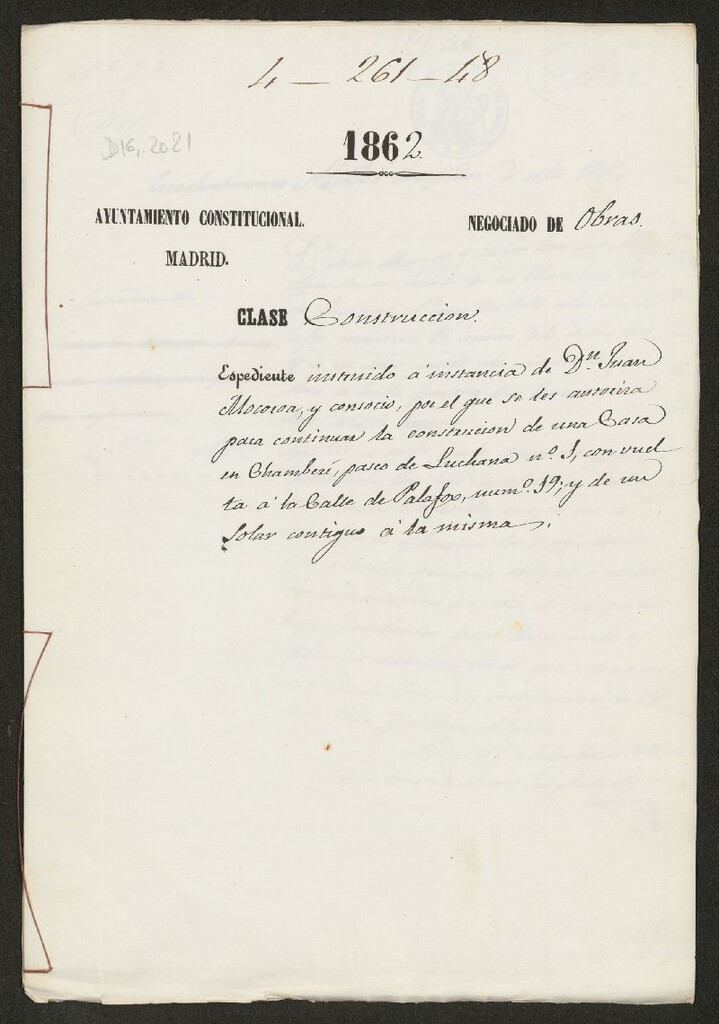 4 — 261 — 48
1862.
DIG. 2021
AYUNTAMIENTO CONSTITUCIONAL.
NEGOCIADO DE Obras.
MADRID.
CLASE Construccion.
Espediente instruido á instancia de Dn. Juan
Mocoroa, y consocio, por el que se les autoriza
para continuar la construccion de una Casa
en Chamberí, paseo de Luchana nº. 1, con vuel
ta á la Calle de Palafox, numº. 19; y de un
Solar contiguo á la misma.